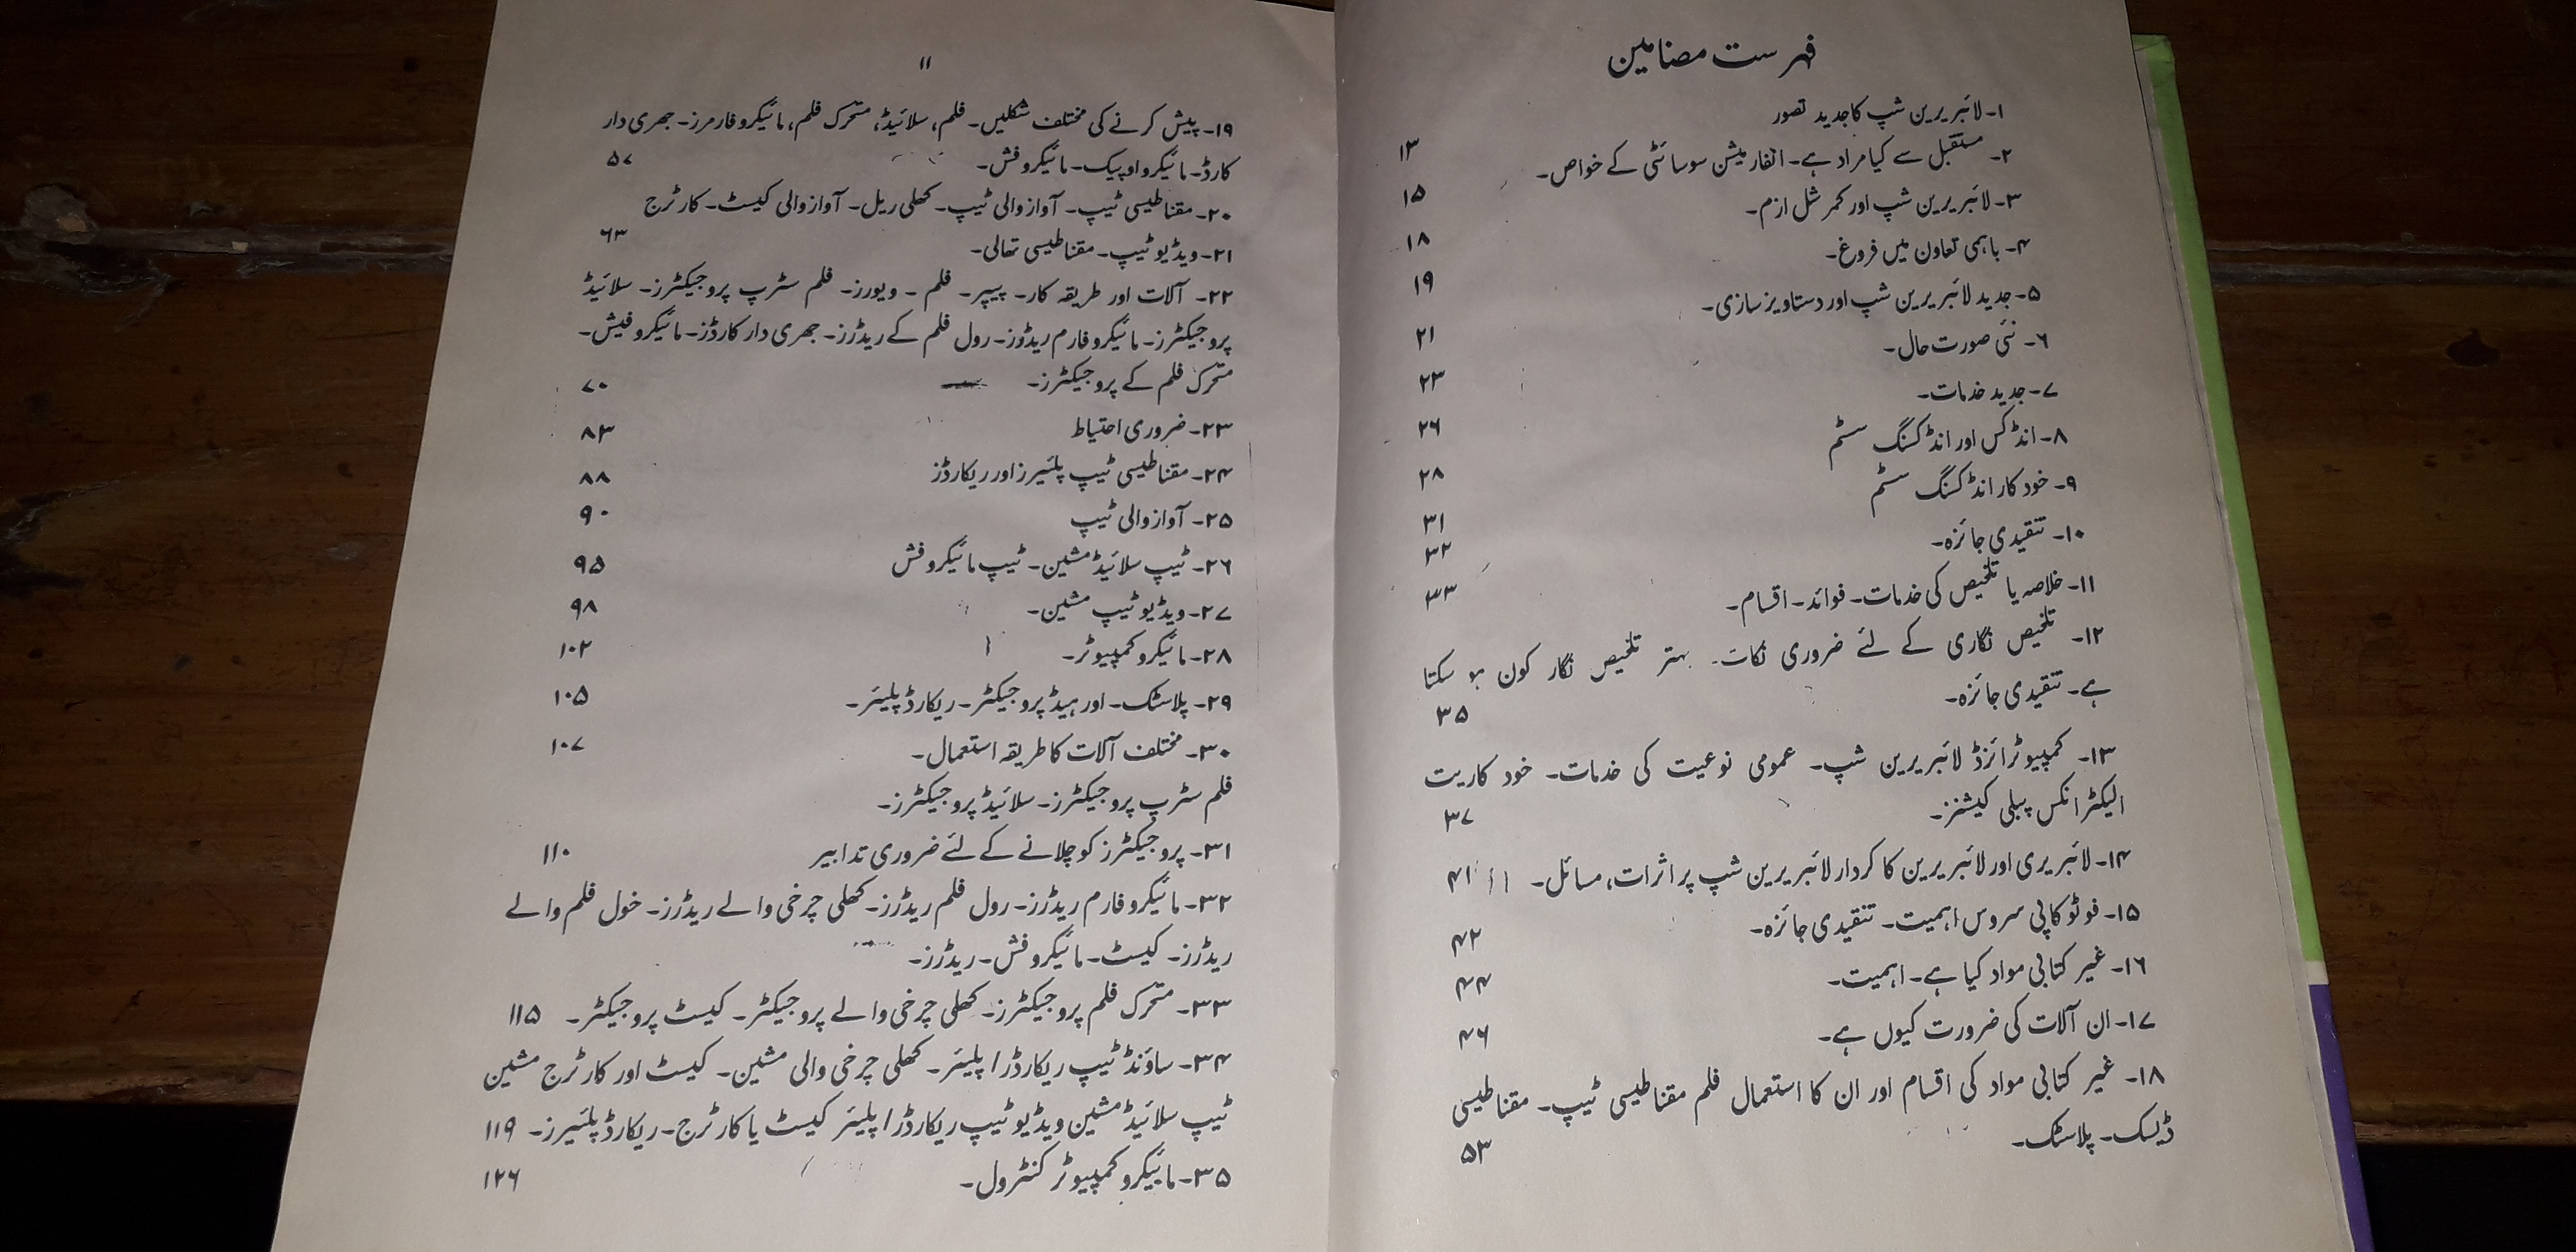 فہرست مضامین
۱۔ لائبریرین شپ کا جدید تصور ۱۳
۲۔ مستقبل سے کیا مراد ہے۔ انفارمیشن سوسائٹی کے خواص۔ ۱۵
۳۔ لائبریرین شپ اور کمرشل ازم۔ ۱۸
۴۔ باہمی تعاون میں فروغ۔ ۱۹
۵۔ جدید لائبریرین شپ اور دستاویز سازی۔ ۲۱
۶۔ نئی صورت حال۔ ۲۳
۷۔ جدید خدمات۔ ۲۶
۸۔ انڈکس اور انڈکسنگ سسٹم ۲۸
۹۔ خود کار انڈکسنگ سسٹم ۳۱
۱۰۔ تنقیدی جائزہ۔ ۳۲
۱۱۔ خلاصہ یا تلخیص کی خدمات۔ فوائد۔ اقسام۔ ۳۳
۱۲۔ تلخیص نگاری کے لئے ضروری نکات۔ بہتر تلخیص نگار کون ہو سکتا
ہے۔ تنقیدی جائزہ۔ ۳۵
۱۳۔ کمپیوٹرائزڈ لائبریرین شپ۔ عمومی نوعیت کی خدمات۔ خود کاریت
الیکٹرانکس پبلی کیشنز۔ ۳۷
۱۴۔ لائبریری اور لائبریرین کا کردار لائبریرین شپ پر اثرات، مسائل۔ ۴۱
۱۵۔ فوٹو کاپی سروس اہمیت۔ تنقیدی جائزہ۔ ۴۲
۱۶۔ غیر کتابی مواد کیا ہے۔ اہمیت۔ ۴۴
۱۷۔ ان آلات کی ضرورت کیوں ہے۔ ۴۶
۱۸۔ غیر کتابی مواد کی اقسام اور ان کا استعمال فلم مقناطیسی ٹیپ۔ مقناطیسی
ڈیسک۔ پلاسٹک۔ ۵۳
۱۱
۱۹۔ پیش کرنے کی مختلف شکلیں۔ فلم، سلائیڈ، متحرک فلم، مائیکرو فارمرز۔ جھری دار
کارڈ۔ مائیکرو اوپیک۔ مائیکرو فش۔ ۵۷
۲۰۔ مقناطیسی ٹیپ۔ آواز والی ٹیپ۔ کھلی ریل۔ آواز والی کیسٹ۔ کارٹرج
۲۱۔ ویڈیو ٹیپ۔ مقناطیسی تھالی۔ ۶۳
۲۲۔ آلات اور طریقہ کار۔ پیپر۔ فلم۔ ویورز۔ فلم سٹرپ پروجیکٹرز۔ سلائیڈ
پروجیکٹرز۔ مائیکرو فارم ریڈوز۔ رول فلم کے ریڈرز۔ جھری دار کارڈز۔ مائیکرو فیش۔
متحرک فلم کے پروجیکٹرز۔ ۷۰
۲۳۔ ضروری احتیاط ۸۳
۲۴۔ مقناطیسی ٹیپ پلئیرز اور ریکارڈز ۸۸
۲۵۔ آواز والی ٹیپ ۹۰
۲۶۔ ٹیپ سلائیڈ مشین۔ ٹیپ مائیکرو فش ۹۵
۲۷۔ ویڈیو ٹیپ مشین۔ ۹۸
۲۸۔ مائیکرو کمپیوٹر۔ ۱۰۲
۲۹۔ پلاسٹک۔ اور ہیڈ پروجیکٹر۔ ریکارڈ پلیئر۔ ۱۰۵
۳۰۔ مختلف آلات کا طریقہ استعمال۔ ۱۰۷
فلم سٹرپ پروجیکٹرز۔ سلائیڈ پروجیکٹرز۔
۳۱۔ پروجیکٹرز کو چلانے کے لئے ضروری تدابیر ۱۱۰
۳۲۔ مائیکرو فارم ریڈرز۔ رول فلم ریڈرز۔ کھلی چرخی والے ریڈرز۔ خول فلم والے
ریڈرز۔ کیسٹ۔ مائیکرو فش۔ ریڈرز۔
۳۳۔ متحرک فلم پروجیکٹرز۔ کھلی چرخی والے پروجیکٹر۔ کیسٹ پروجیکٹر۔ ۱۱۵
۳۴۔ ساؤنڈ ٹیپ ریکارڈر/ پلیئر۔ کھلی چرخی والی مشین۔ کیسٹ اور کارٹرج مشین
ٹیپ سلائیڈ مشین ویڈیو ٹیپ ریکارڈر/ پلیئر کیسٹ یا کارٹرج۔ ریکارڈ پلئیرز۔ ۱۱۹
۳۵۔ مائیکرو کمپیوٹر کنٹرول۔ ۱۲۶